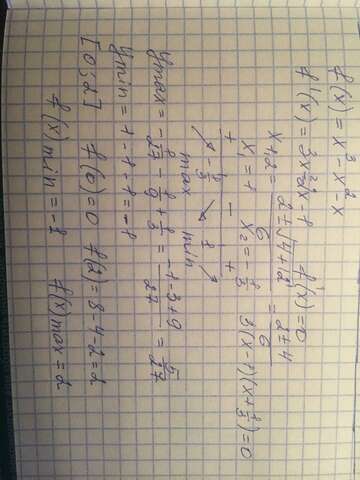 f(x) = x³ - x² - x
f'(x) = 3x² - 2x - 1 f'(x) = 0
x₁,₂ = (2 ± √(4+12))/6 = (2 ± 4)/6
x₁ = 1 x₂ = -1/3 3(x-1)(x+1/3) = 0
+ - +
-1/3 1
max min
ymax = -1/27 - 1/9 + 1/3 = (-1-3+9)/27 = 5/27
ymin = 1 - 1 - 1 = -1
[0; 2] f(0) = 0 f(2) = 8 - 4 - 2 = 2
f(x) min = -1 f(x) max = 2